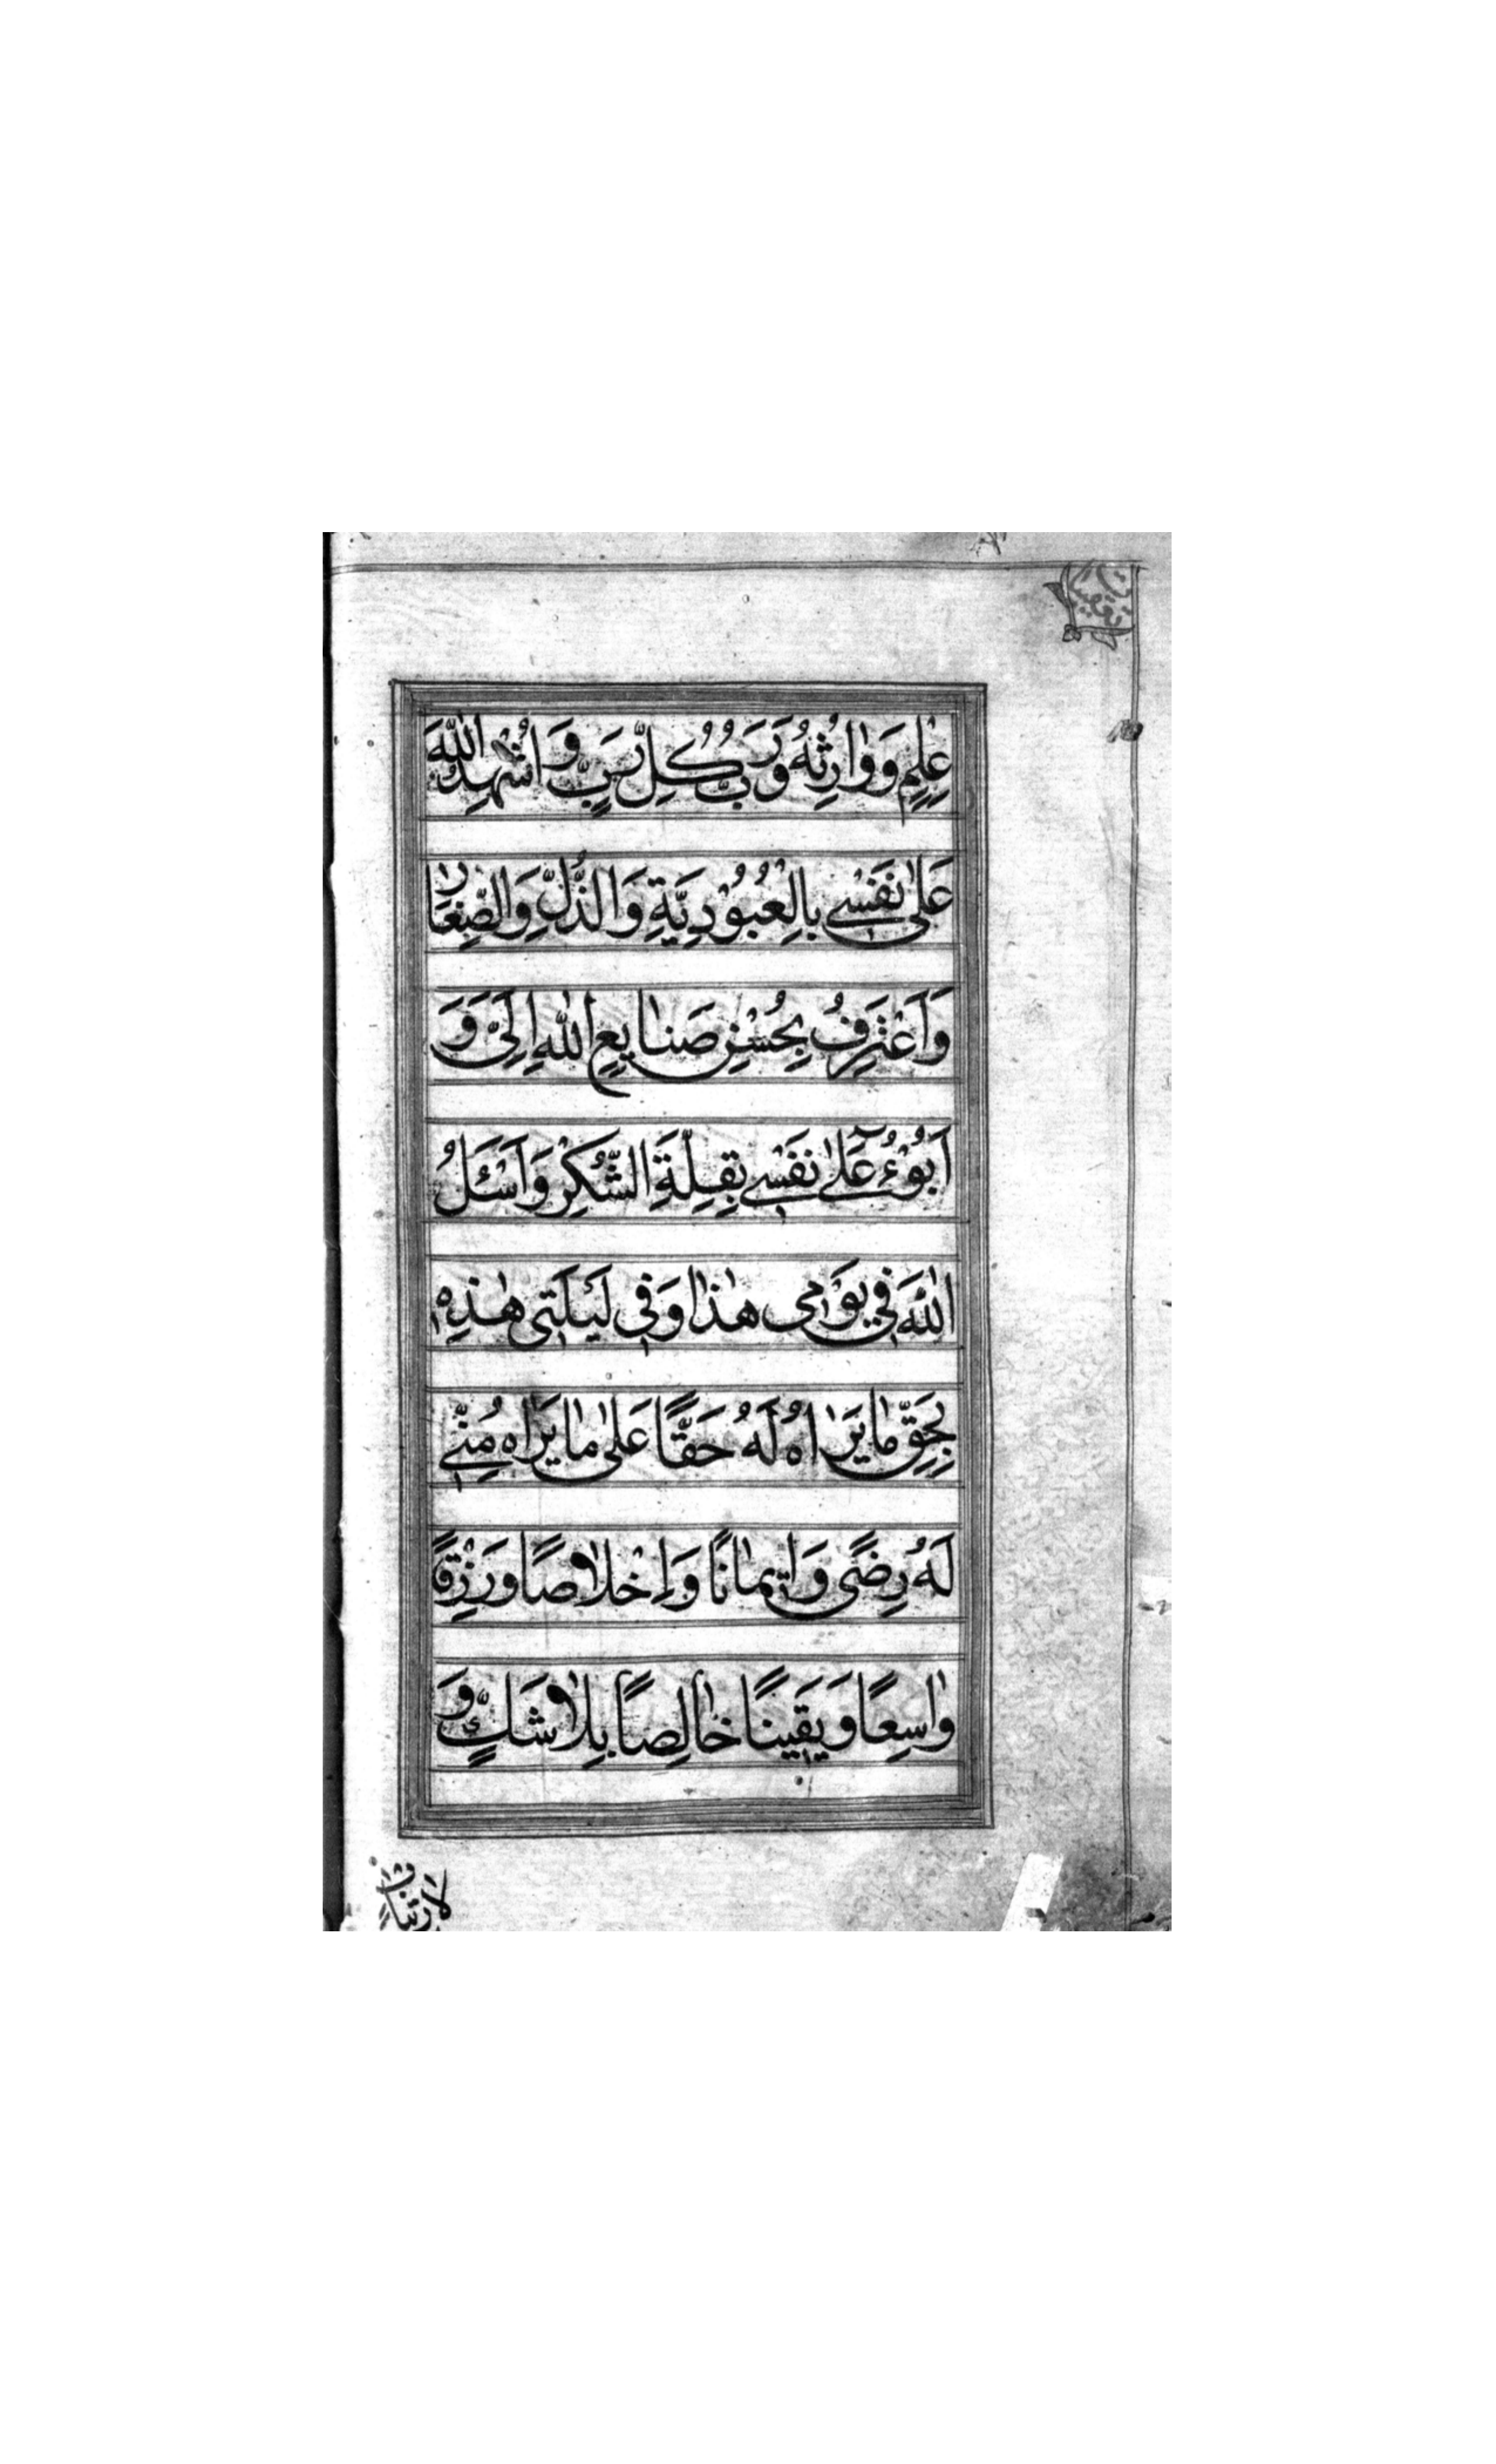 عِلْمٍ وَوٰارِثُهُ وَرَبُّ كُلِّ رَبٍّ وَاُشْهِدُ اللّٰهَ
عَلىٰ نَفْسٖي بِالْعُبُوْدِيَّةِ وَالذُّلِّ وَالصِّغٰارِ
وَاَعْتَرِفُ بِحُسْنِ صَنٰايِعِ اللّٰهِ اِلَيَّ وَ
اَبُوْءُ عَلىٰ نَفْسٖي بِقِلَّةِ الشُّكْرِ وَاَسْئَلُ
اللّٰهَ فٖي يَوْمٖي هٰذٰا وَفٖي لَيْلَتٖي هٰذِهٖ
بِحَقِّ مٰا يَرٰاهُ لَهُ حَقًّا عَلىٰ مٰا يَرٰاهُ مِنّٖي
لَهُ رِضًى وَاٖيمٰانًا وَاِخْلاٰصًا وَرِزْقًا
وٰاسِعًا وَيَقٖينًا خٰالِصًا بِلاٰ شَكٍّ وَ
لاَ ارْتِيٰابٍ